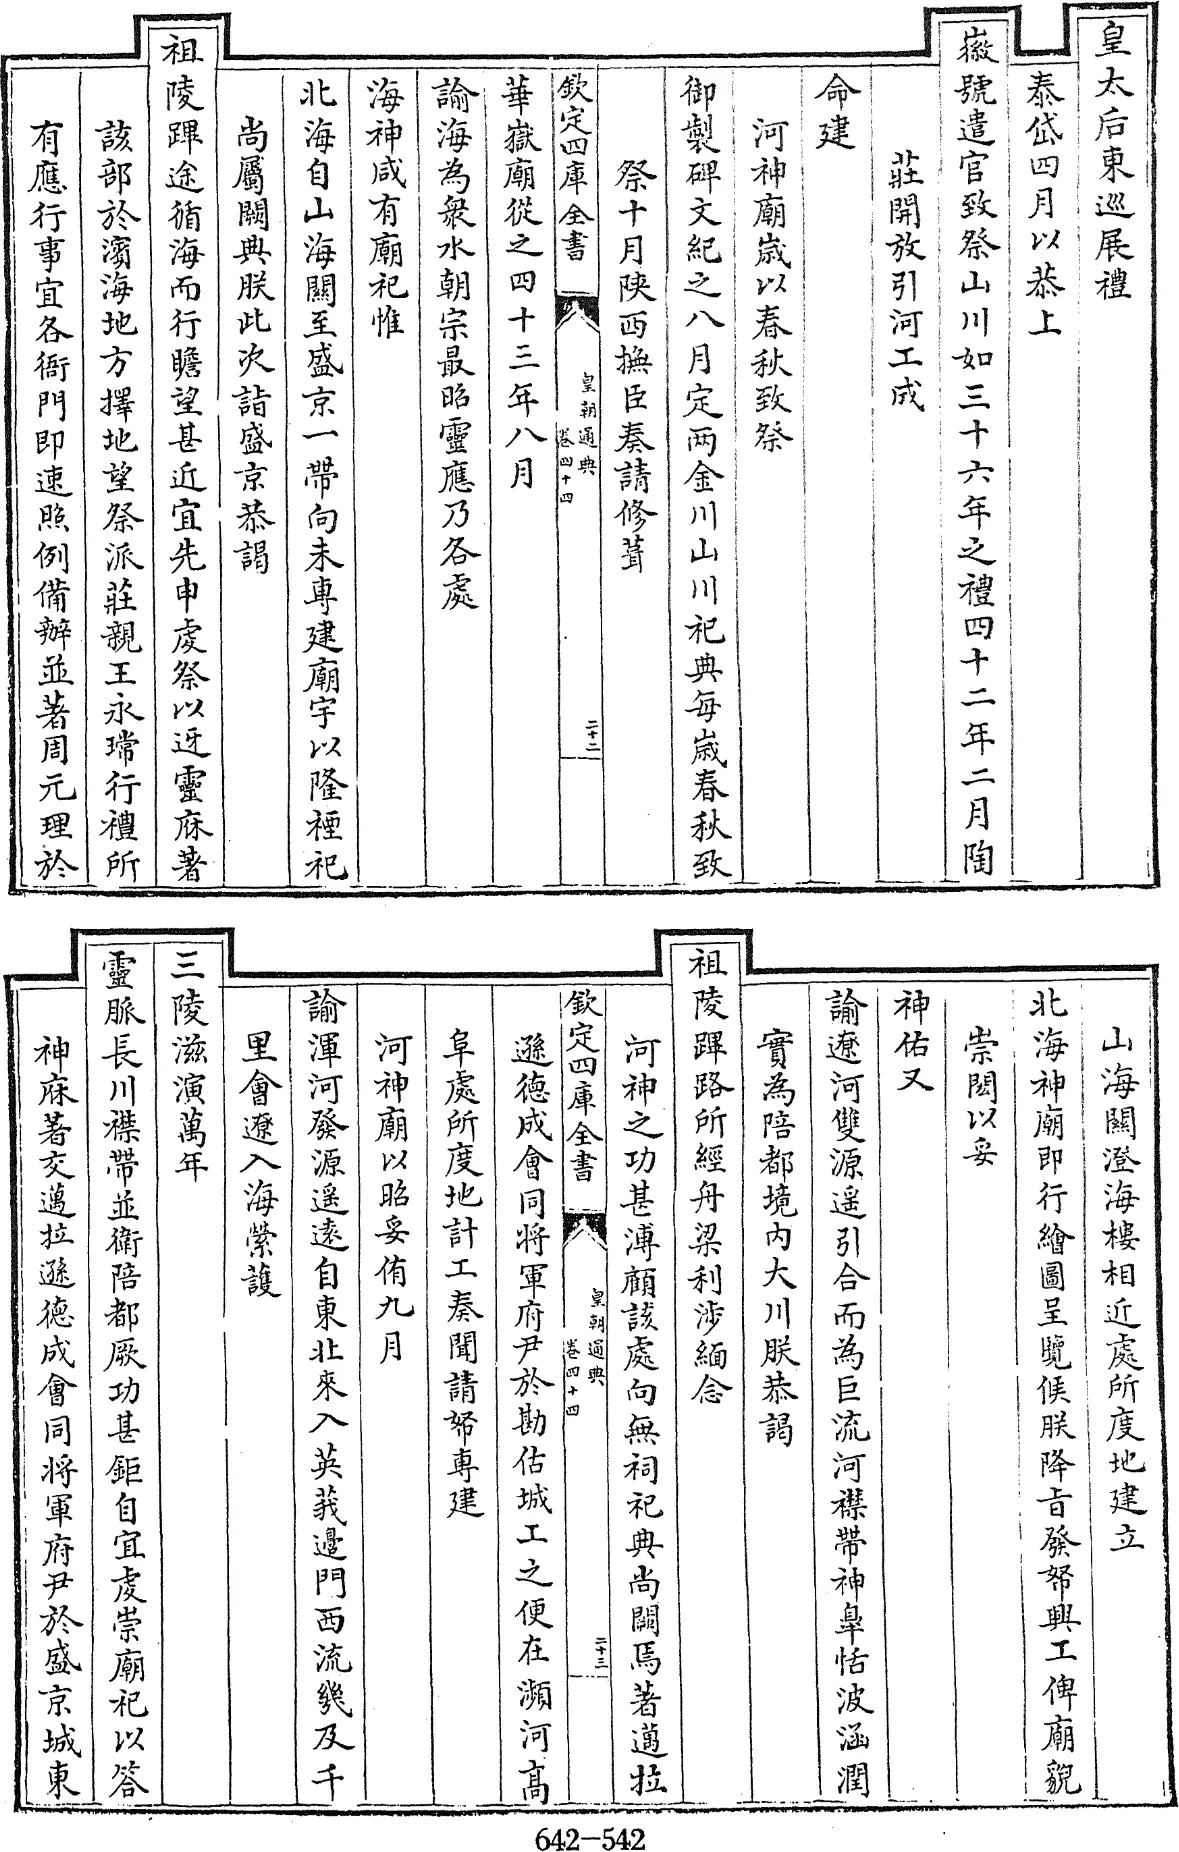 皇太后東巡展禮
泰岱四月以恭上
徽號遣官致祭山川如三十六年之禮四十二年二月陶
莊開放引河工成
命建
河神廟嵗以春秋致祭
御製碑文紀之八月定兩金川山川祀典每嵗春秋致
祭十月陜西撫臣奏請修葺
欽定四庫全書
皇朝通典
卷四十四
二十二
華嶽廟從之四十三年八月
諭海為衆水朝宗最昭靈應乃各處
海神咸有廟祀惟
北海自山海關至盛京一帶向未專建廟宇以隆禋祀
尚屬闕典朕此次詣盛京恭謁
祖陵蹕途循海而行瞻望甚近宜先申䖍祭以迓靈庥著
該部於濱海地方擇地望祭派莊親王永瑺行禮所
有應行事宜各衙門即速照例備辦並著周元理於
山海關澄海樓相近處所度地建立
北海神廟即行繪圖呈覽俟朕降旨發帑興工俾廟貌
崇閎以妥
神佑又
諭遼河雙源遥引合而為巨流河襟帶神臯恬波涵潤
實為陪都境内大川朕恭謁
祖陵蹕路所經舟梁利涉緬念
河神之功甚溥顧該處向無祠祀典尚闕焉著邁拉
欽定四庫全書
皇朝通典
卷四十四
二十三
遜德成會同將軍府尹於勘估城工之便在瀕河髙
阜處所度地計工奏聞請帑専建
河神廟以昭妥侑九月
諭渾河發源遥遠自東北來入英莪邊門西流幾及千
里會遼入海縈護
三陵滋演萬年
靈脈長川襟帶並衛陪都厥功甚鉅自宜䖍崇廟祀以答
神庥著交邁拉遜德成會同將軍府尹於盛京城東
642-542